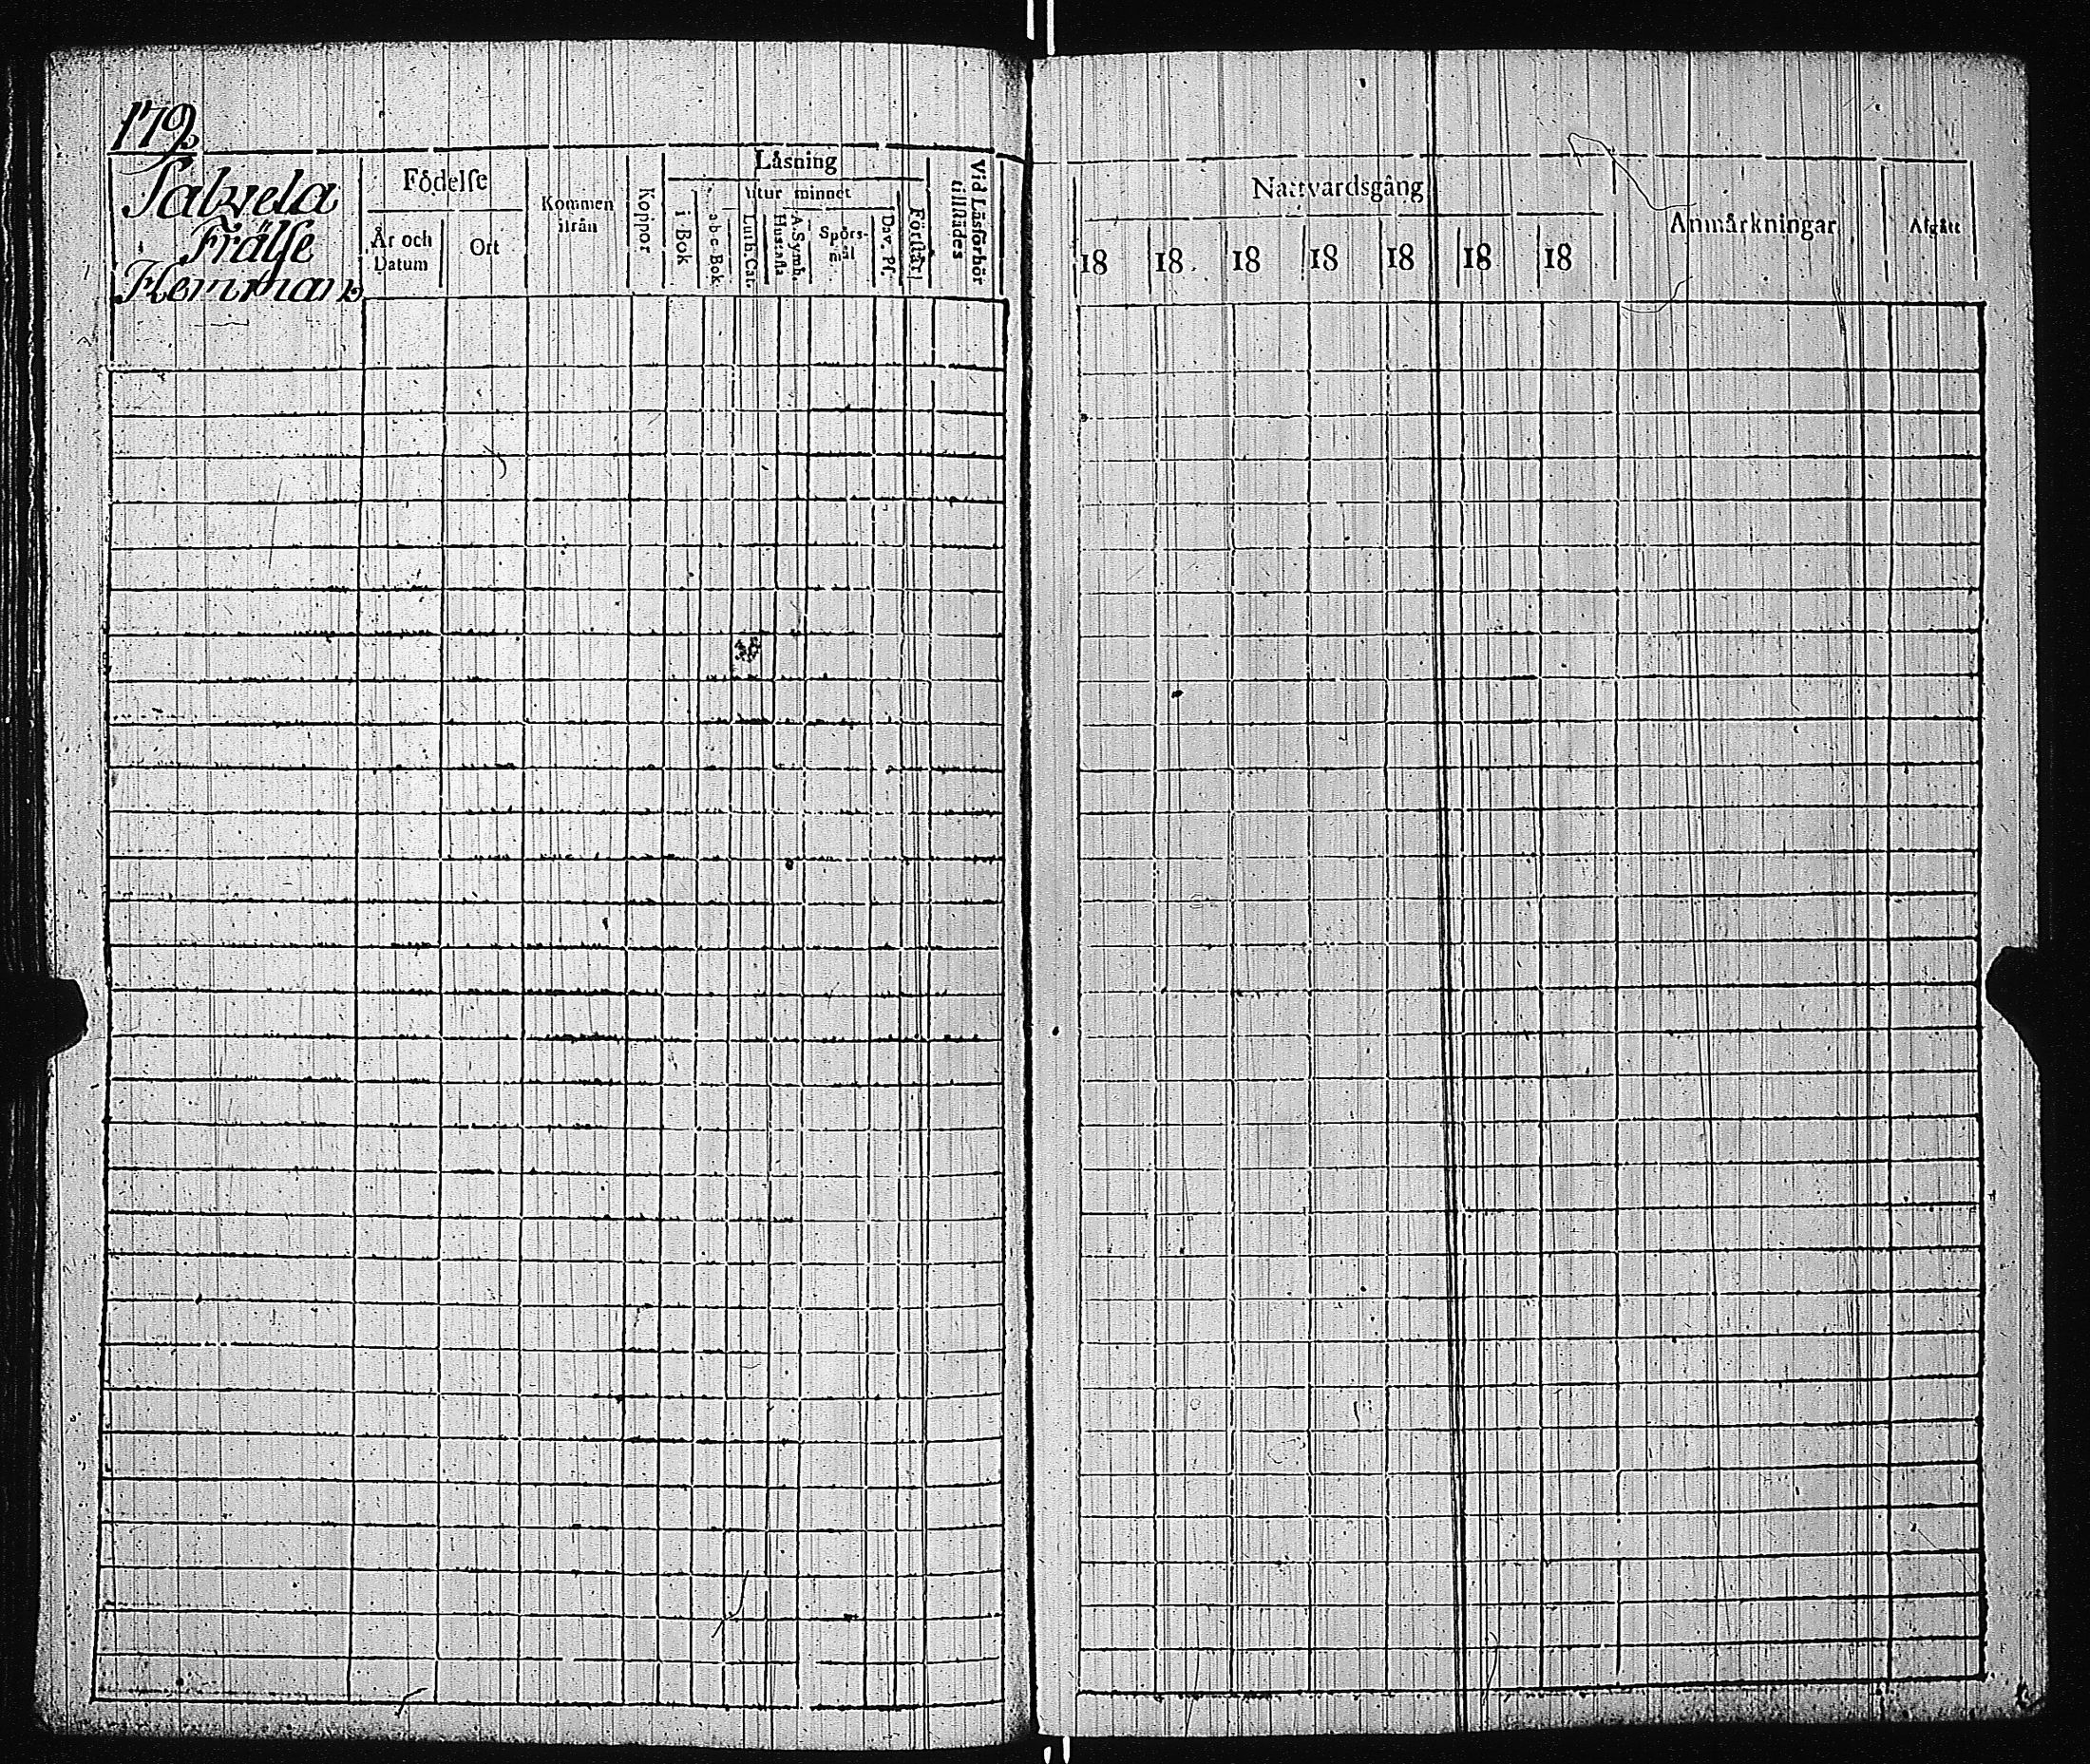 179
Salvela
Frälse
Hemman
Födelse
År och
Datum
Ort
Kommen
ifrån
Koppor
Låsning
i Bok
utur minnet
a-b-c-Bok
Luth. Cat.
Hustafla
A. Symb.
Spörs-
mål
Dav. Ps.
Förstår
Vid Läsförhör
tillstädes
Nattvardsgång
18 18 18 18 18 18 18
Anmårkningar
Afgått